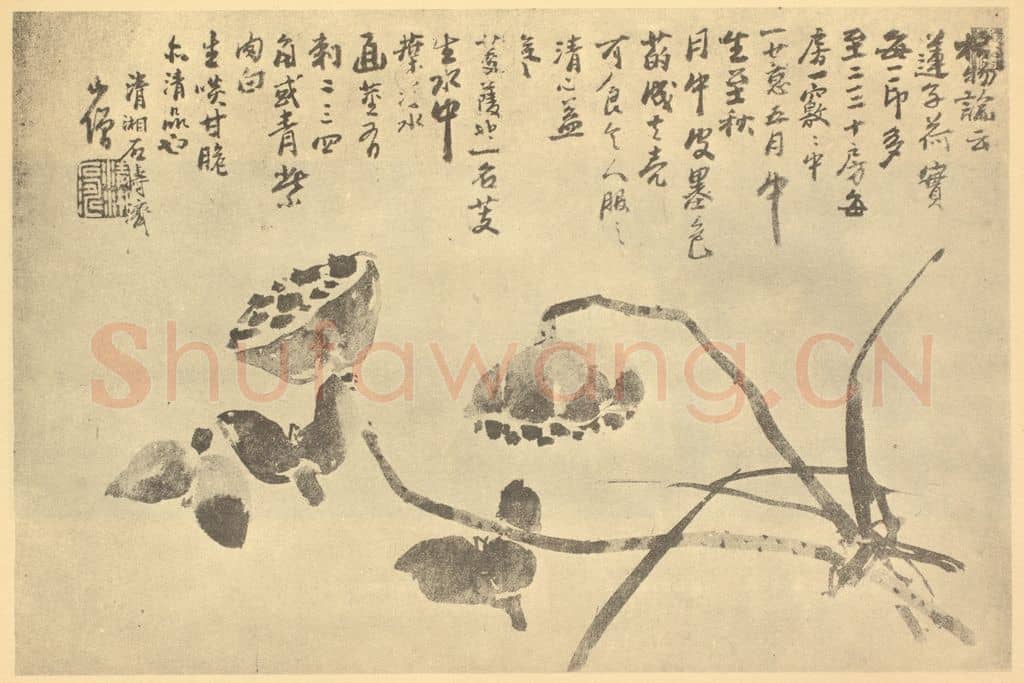 格物論云
蓮子荷實
每一印多
至二三十房每
房一竅〻中
一 五月中
生至秋
月中皮墨色
菂成 壳
可食令人服之
清心益
氣
菱 一名芰
生水中
葉浮水
面莖有
刺二三四
角或青紫
肉白
生啖甘脆
亦清品也
清湘石濤濟
山僧
Shufawang.CN